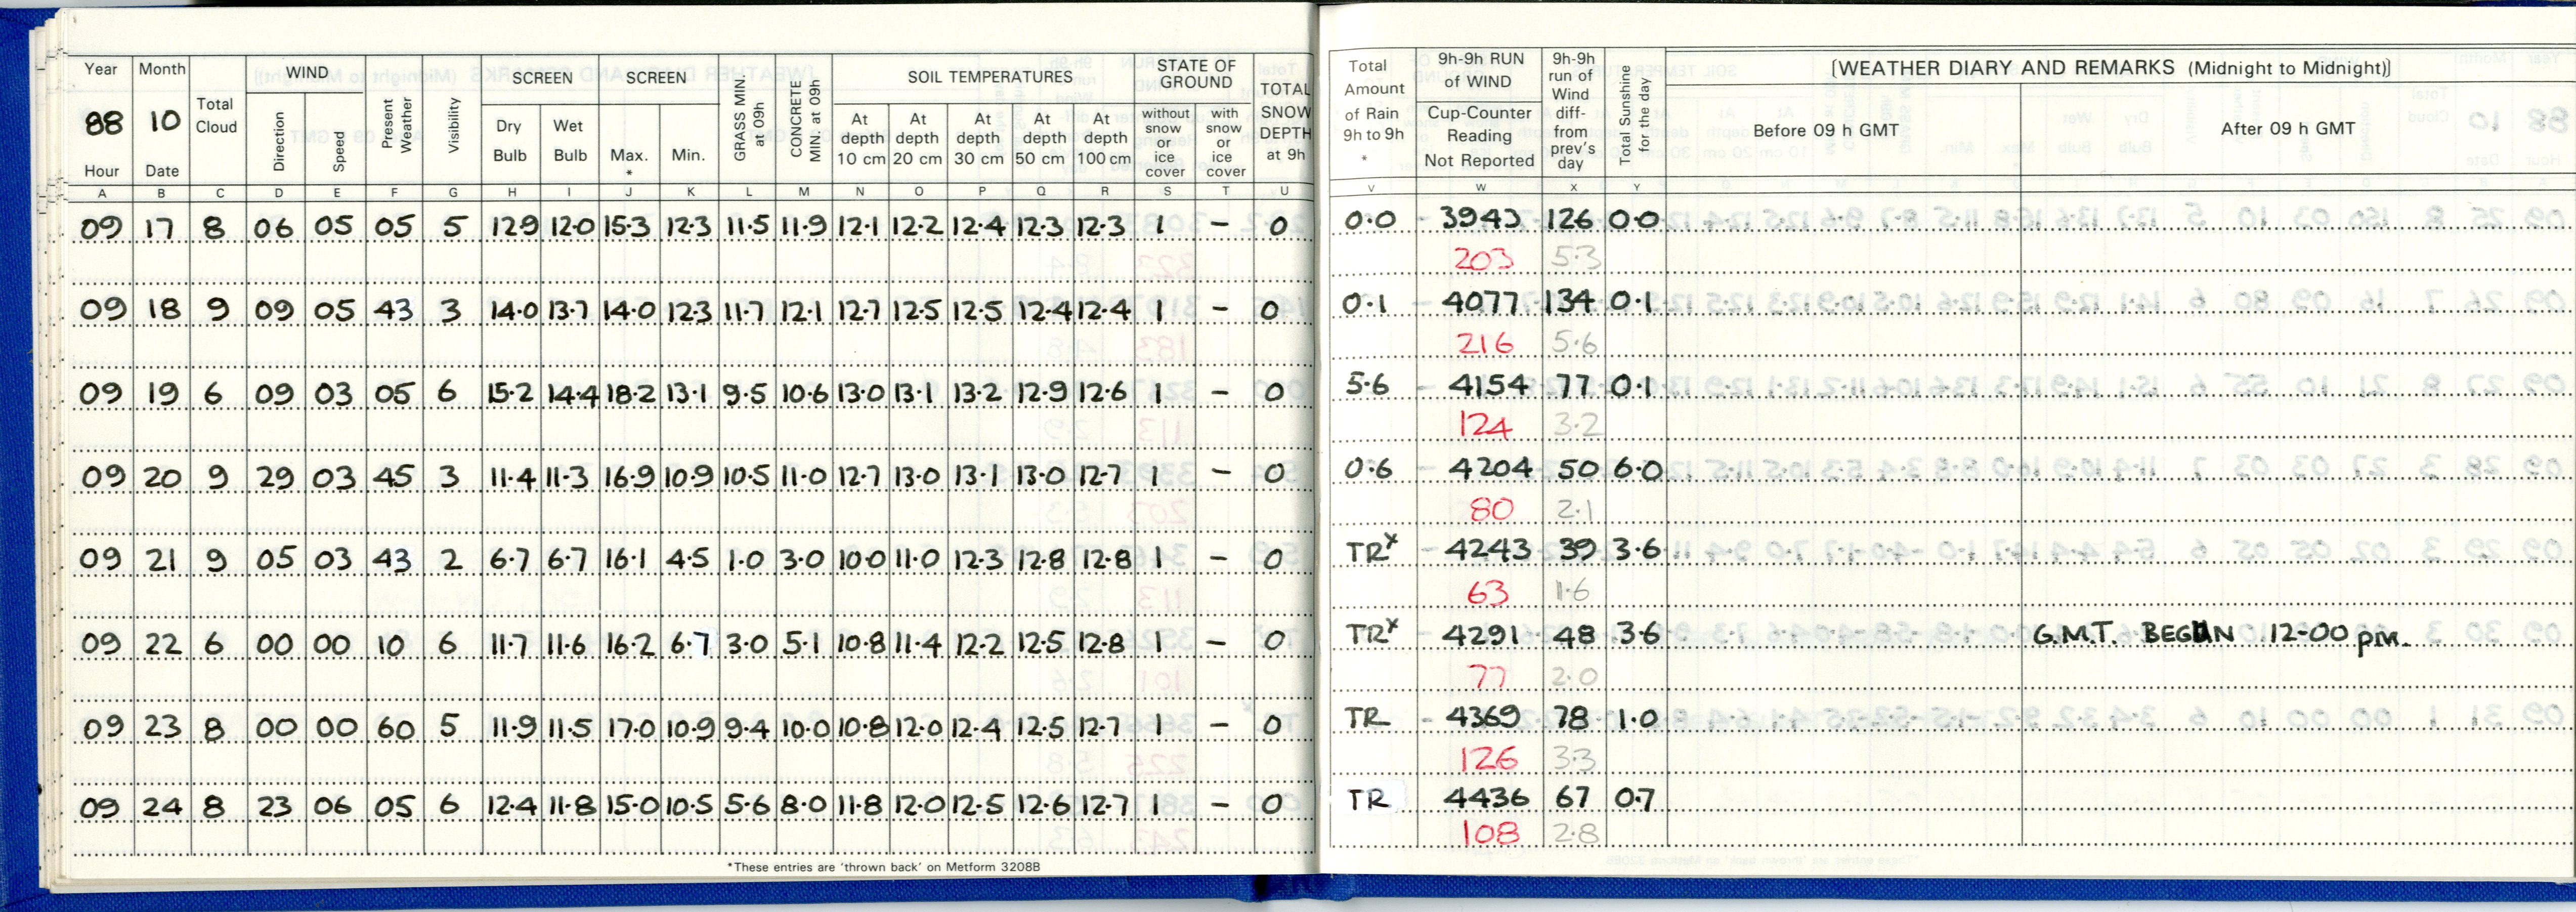 Year Month Total Cloud WIND Present Weather Visibility SCREEN SCREEN GRASS MIN at 09h CONCRETE MIN at 09h SOIL TEMPERATURES STATE OF GROUND TOTAL SNOW DEPTH at 9h
88 10 Direction Speed Dry Bulb Wet Bulb Max. * Min. At depth 10 cm At depth 20 cm At depth 30 cm At depth 50 cm At depth 100 cm without snow or ice cover with snow or ice cover
Hour Date
A B C D E F G H I J K L M N O P Q R S T U
09 17 8 06 05 05 5 12.9 12.0 15.3 12.3 11.5 11.9 12.1 12.2 12.4 12.3 12.3 1 – 0
09 18 9 09 05 43 3 14.0 13.7 14.0 12.3 11.7 12.1 12.7 12.5 12.5 12.4 12.4 1 – 0
09 19 6 09 03 05 6 15.2 14.4 18.2 13.1 9.5 10.6 13.0 13.1 13.2 12.9 12.6 1 – 0
09 20 9 29 03 45 3 11.4 11.3 16.9 10.9 10.5 11.0 12.7 13.0 13.1 13.0 12.7 1 – 0
09 21 9 05 03 43 2 6.7 6.7 16.1 4.5 1.0 3.0 10.0 11.0 12.3 12.8 12.8 1 – 0
09 22 6 00 00 10 6 11.7 11.6 16.2 6.7 3.0 5.1 10.8 11.4 12.2 12.5 12.8 1 – 0
09 23 8 00 00 60 5 11.9 11.5 17.0 10.9 9.4 10.0 10.8 12.0 12.4 12.5 12.7 1 – 0
09 24 8 23 06 05 6 12.4 11.8 15.0 10.5 5.6 8.0 11.8 12.0 12.5 12.6 12.7 1 – 0
*These entries are 'thrown back' on Metform 3208B
Total Amount of Rain 9h to 9h * 9h-9h RUN of WIND Cup-Counter Reading Not Reported 9h-9h run of Wind diff- from prev's day Total Sunshine for the day [WEATHER DIARY AND REMARKS (Midnight to Midnight)]
Before 09 h GMT After 09 h GMT
V W X Y
0.0 3943 126 0.0
203 5.3
0.1 4077 134 0.1
216 5.6
5.6 4154 77 0.1
124 3.2
0.6 4204 50 6.0
80 2.1
TRx 4243 39 3.6
63 1.6
TRx 4291 48 3.6 G.M.T. BEGUN 12-00 pm.
77 2.0
TR 4369 78 1.0
126 3.3
TR 4436 67 0.7
108 2.8